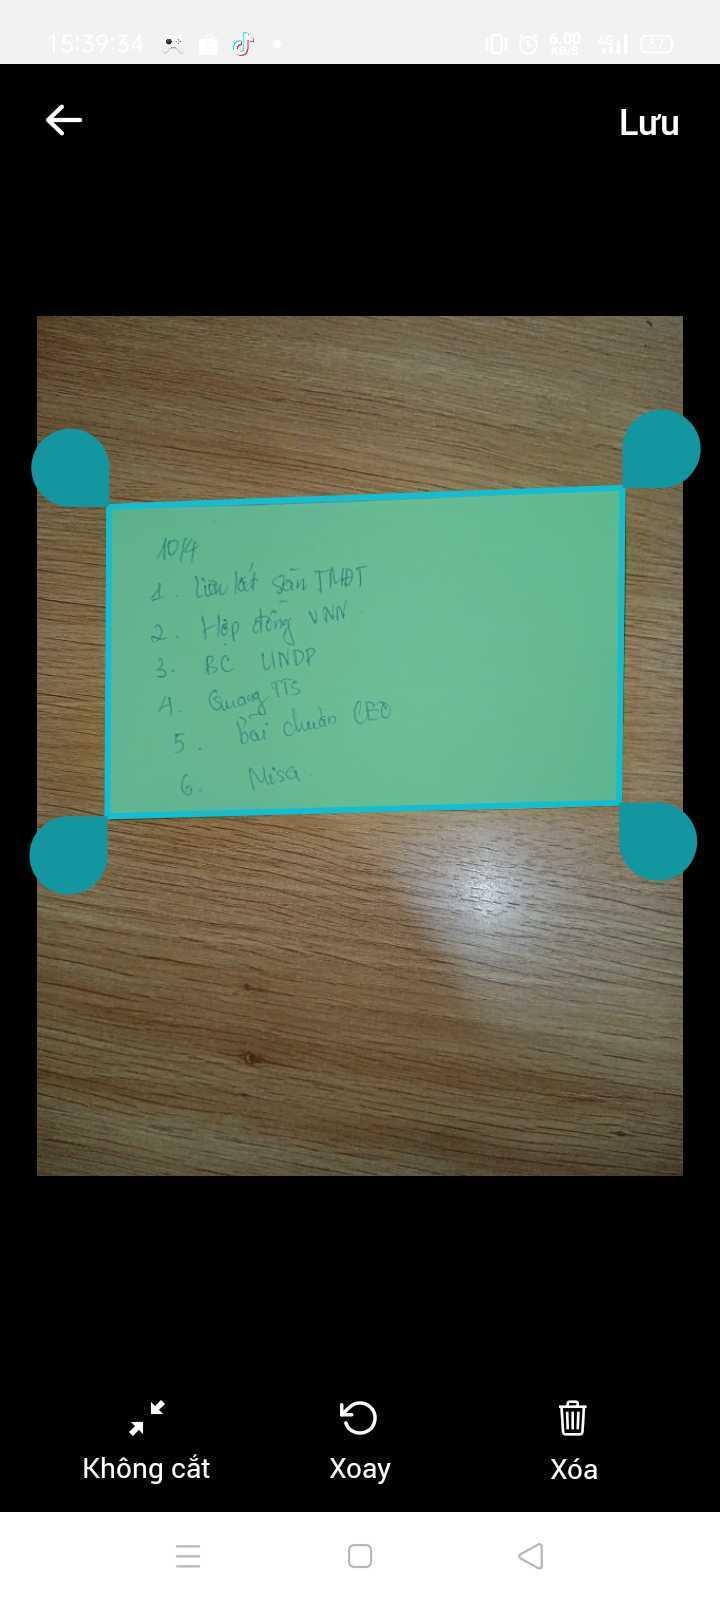 15:39:34
6.00
KB/S
4G
37
Lưu
10/4
1. Liên kết sàn TMĐT
2. Hợp đồng VNN
3. BC UNDP
4. Quang TTS
5. Bài chuẩn CEO
6. Misa.
Không cắt
Xoay
Xóa